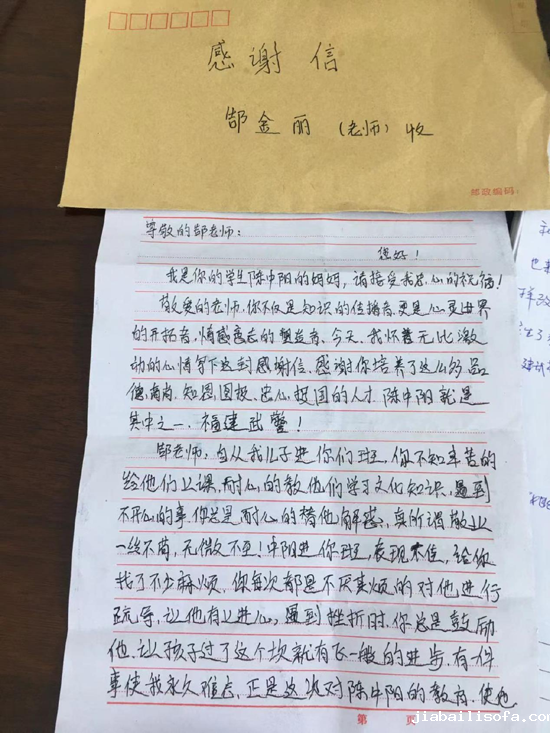 感谢信
郜金丽（老师）收
邮政编码：
尊敬的郜老师：
您好！
我是你的学生陈中阳的妈妈，请接受我衷心的祝福！
敬爱的老师，你不仅是知识的传播者，更是心灵世界
的开拓者，情感意志的塑造者、今天、我怀着无比激
动的心情写下这封感谢信、感谢你培养了这么多品
德高尚、知恩图报、忠心报国的人才，陈中阳就是
其中之一，福建武警！
郜老师，自从我儿子进你们班，你不知辛苦的
给他们上课，耐心的教他们学习文化知识，遇到
不开心的事，你总是耐心的替他解惑，真所谓敬业
一丝不苟，无微不至！中阳进你班，表现不佳，给你
找了不少麻烦，你每次都是不厌其烦的对他进行
疏导，让他有上进心，遇到挫折时，你总是鼓励
他，让孩子过了这个坎就有飞一般的进步，有一件
事使我永久难忘，正是这次对陈中阳的教育，使他
第 页
jiabailisofa.com